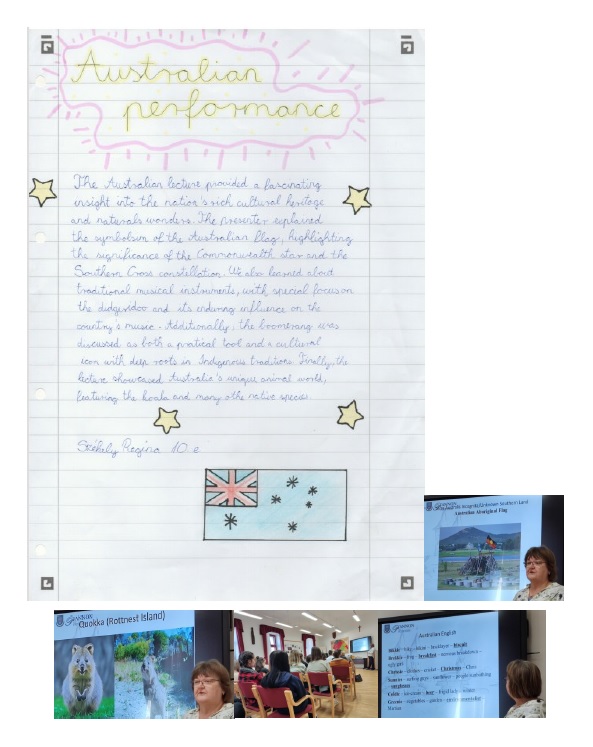 Australian
performance
The Australian lecture provided a fascinating
insight into the nation's rich cultural heritage
and naturals wonders. The presenter explained
the symbolism of the Australian flag, highlighting
the significance of the Commonwealth star and the
Southern Cross constellation. We also learned about
traditional musical instruments, with special focus on
the didgeridoo and its enduring influence on the
country's music. Additionally, the boomerang was
discussed as both a pratical tool and a cultural
icon with deep roots in Indigenous traditions. Finally, the
lecture showcased Australia's unique animal world,
featuring the koala and many othe native species.
Székely Regina 10. e
Southern Land
Australian Aboriginal Flag
SHANNON
Quokka (Rottnest Island)
Australian English
Christmas